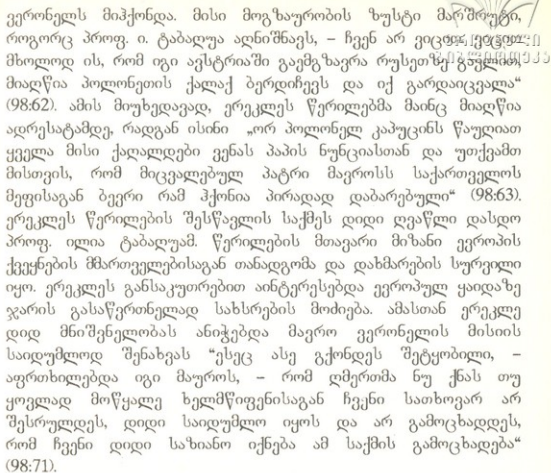 ვერონელს მიჰქონდა. მისი მოგზაურობის ზუსტი მარშრუტი,
როგორც პროფ. ი. ტაბაღუა აღნიშნავს, – ჩვენ არ ვიცით, ვიცით
მხოლოდ ის, რომ იგი ავსტრიაში გაემგზავრა რუსეთზე გავლით,
მიაღწია პოლონეთის ქალაქ ბერდიჩევს და იქ გარდაიცვალა“
(98:62). ამის მიუხედავად, ერეკლეს წერილებმა მაინც მიაღწია
ადრესატამდე, რადგან ისინი „ორ პოლონელ კაპუცინს წაუღიათ
ყველა მისი ქაღალდები ვენას პაპის ნუნციასთან და უთქვამთ
მისთვის, რომ მიცვალებულ პატრი მავროსს საქართველოს
მეფისაგან ბევრი რამ ჰქონია პირადად დაბარებული“ (98:63).
ერეკლეს წერილების შესწავლის საქმეს დიდი ღვაწლი დასდო
პროფ. ილია ტაბაღუამ. წერილების მთავარი მიზანი ევროპის
ქვეყნების მმართველებისაგან თანადგომა და დახმარების სურვილი
იყო. ერეკლეს განსაკუთრებით აინტერესებდა ევროპულ ყაიდაზე
ჯარის გასაწვრთნელად სახსრების მოძიება. ამასთან ერეკლე
დიდ მნიშვნელობას ანიჭებდა მავრო ვერონელის მისიის
საიდუმლოდ შენახვას “ესეც ასე გქონდეს შეტყობილი, –
აფრთხილებდა იგი მაუროს, – რომ ღმერთმა ნუ ქნას თუ
ყოვლად მოწყალე ხელმწიფენისაგან ჩვენი სათხოვარ არ
შესრულდეს, დიდი საიდუმლო იყოს და არ გამოცხადდეს,
რომ ჩვენი დიდი საზიანო იქნება ამ საქმის გამოცხადება“
(98:71).